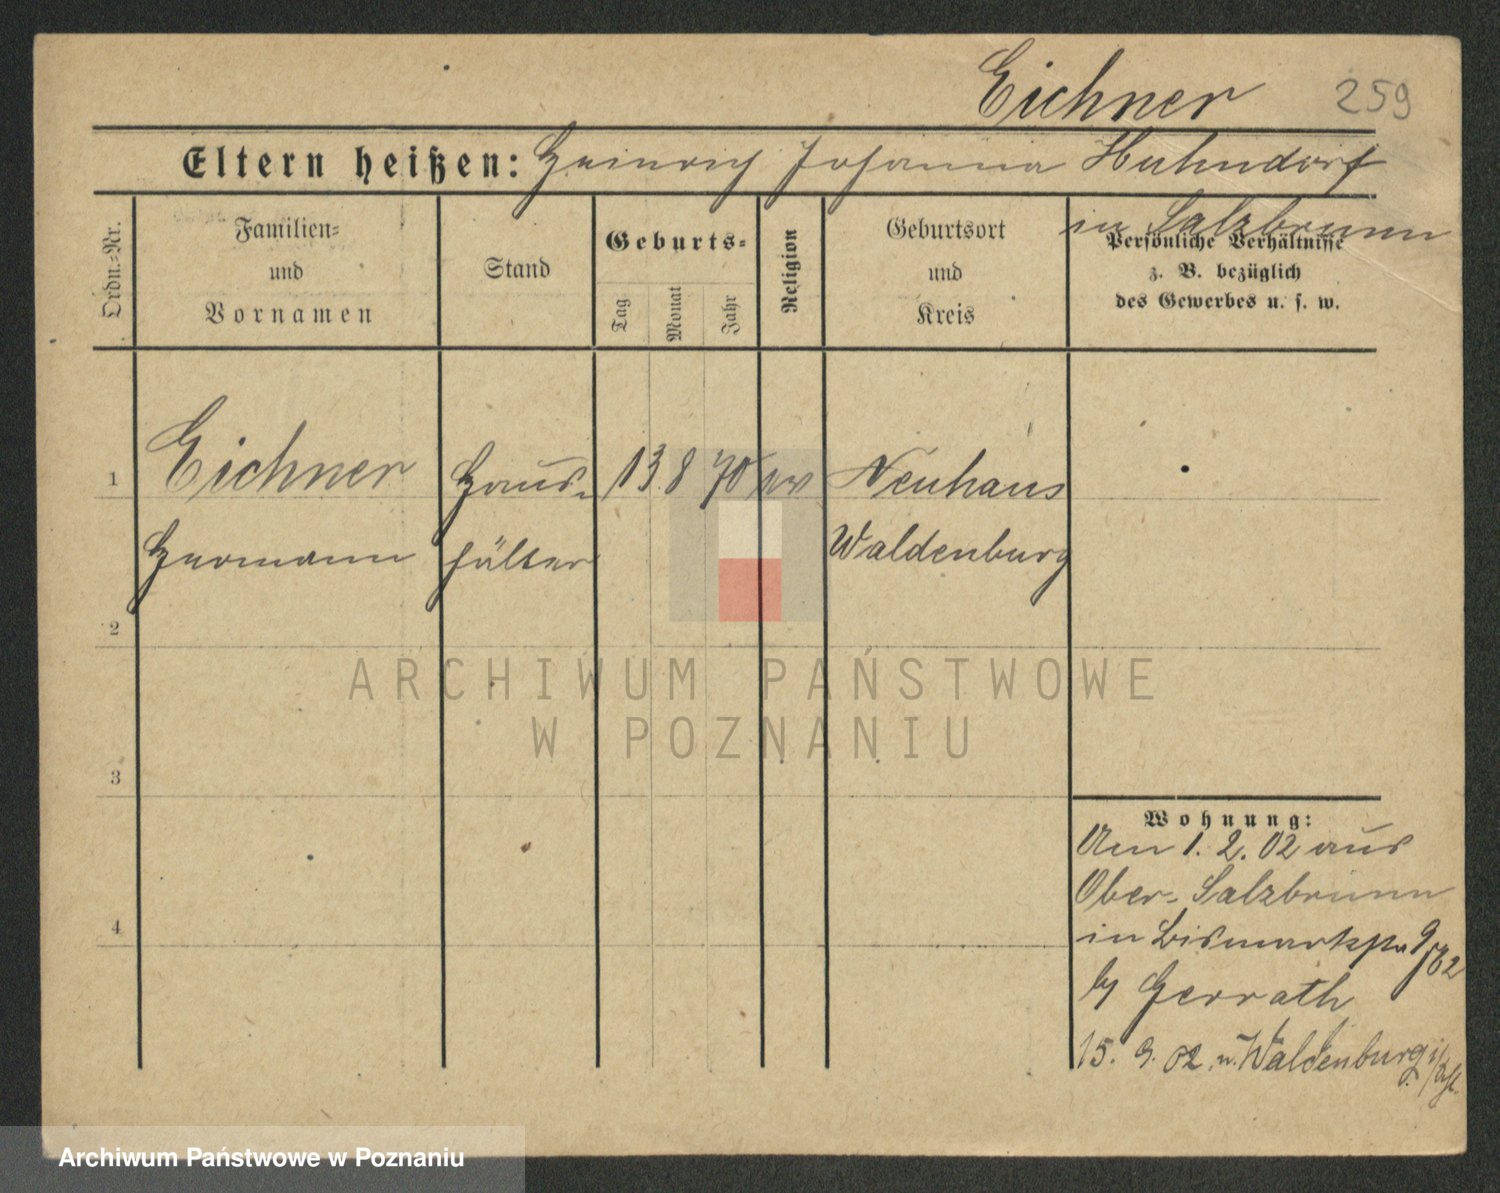 Eichner 259
Eltern heißen: Heinrich Johanna Huhndorf
in Salzbrunn
Ordn.-Nr.
Familien-
und
Vornamen
Stand
Geburts-
Tag
Monat
Jahr
Religion
Geburtsort
und
Kreis
Persönliche Verhältnisse
z. B. bezüglich
des Gewerbes u. s. w.
1 Eichner Haus- 13. 8 70 ev Neuhaus
Hermann hälter Waldenburg
2
3
4
Wohnung:
Am 1. 2. 02 aus
Ober-Salzbrunn
in Bismarkstr 9
b/ Gerrath
15. 9. 02 n. Waldenburg i/Schl.
ARCHIWUM PAŃSTWOWE
W POZNANIU
Archiwum Państwowe w Poznaniu